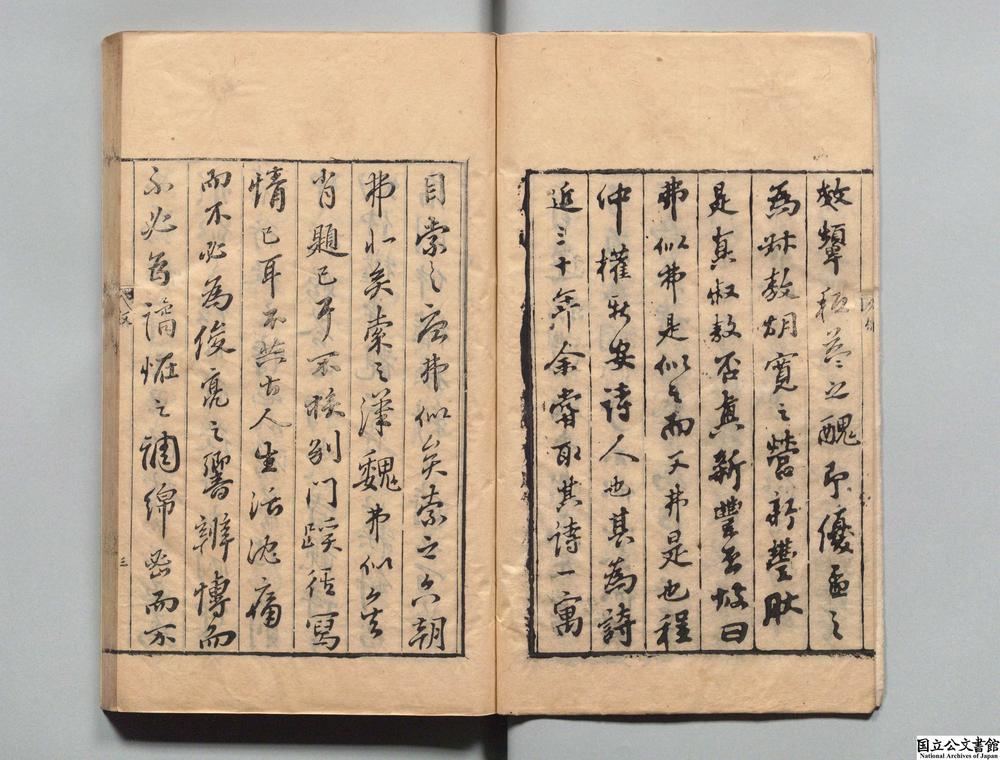 效顰極茲之醜即優孟之
為叔敖胡寬之營新豐肰
是真叔敖否真新豐否故曰
弗似弗是似之而又弗是也程
仲權新安詩人也其為詩
近三十年余嘗取其詩一寓
目索之唐弗似矣索之六朝
弗似矣索之漢魏弗似矣
肖題已耳不獲別門蹊徑寫
情已耳不襲古人生活沈痛
而不必為俊亮之響辨博而
不必為譎恠之調綿密而不
三
国立公文書館
National Archives of Japan